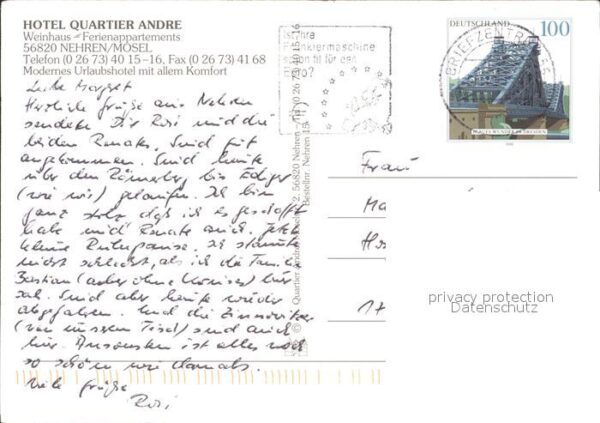 HOTEL QUARTIER ANDRE
Weinhaus - Ferienappartements
56820 NEHREN/MOSEL
Telefon (0 26 73) 40 15 -16, Fax (0 26 73) 41 68
Modernes Urlaubshotel mit allem Komfort
Liebe Margret
Herzliche Grüße aus Nehren
sendet Dir Rosi und die
beiden Renates. Sind gut
angekommen. Sind heute
über den Römerberg bis Ediger
(wie wir) gelaufen. Ich bin
ganz stolz daß ich es geschafft
habe und Renate auch. Jetzt
kleine Ruhepause. Ich staunte
nicht schlecht, als ich die Familie
Bastian (aber ohne) hier
sah. Sind aber heute wieder
abgefahren. Und die
(von unserem Tisch) sind auch
hier. Ansonsten ist alles noch
so schön wie damals.
Viele Grüße
Rosi
Ist Ihre
Frankiermaschine
schon fit für den
Euro?
BRIEFZENTRUM
DEUTSCHLAND
100
BLAUES WUNDER DRESDEN
Frau
Ma
Ho
17
privacy protection
Datenschutz